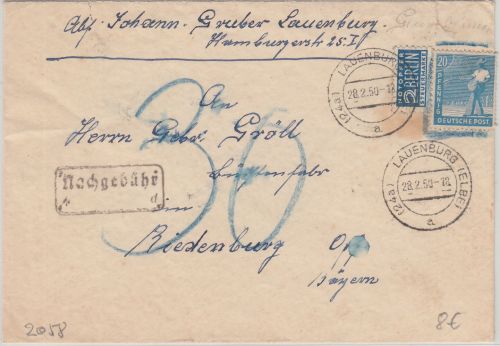 Abs. Johann Gruber Lauenburg.
Hamburgerstr 25 I
LAUENBURG
28.2.50
(24a)
a
NOTOPFER
2 BERLIN
STEUERMARKE
20
PFENNIG
DEUTSCHE POST
An
Herrn Gebr Gröll
30
Nachgebühr
LAUENBURG (ELBE)
28.2.50-18
(24a)
a
in
Riedenburg Opf
Bayern
2058
8€